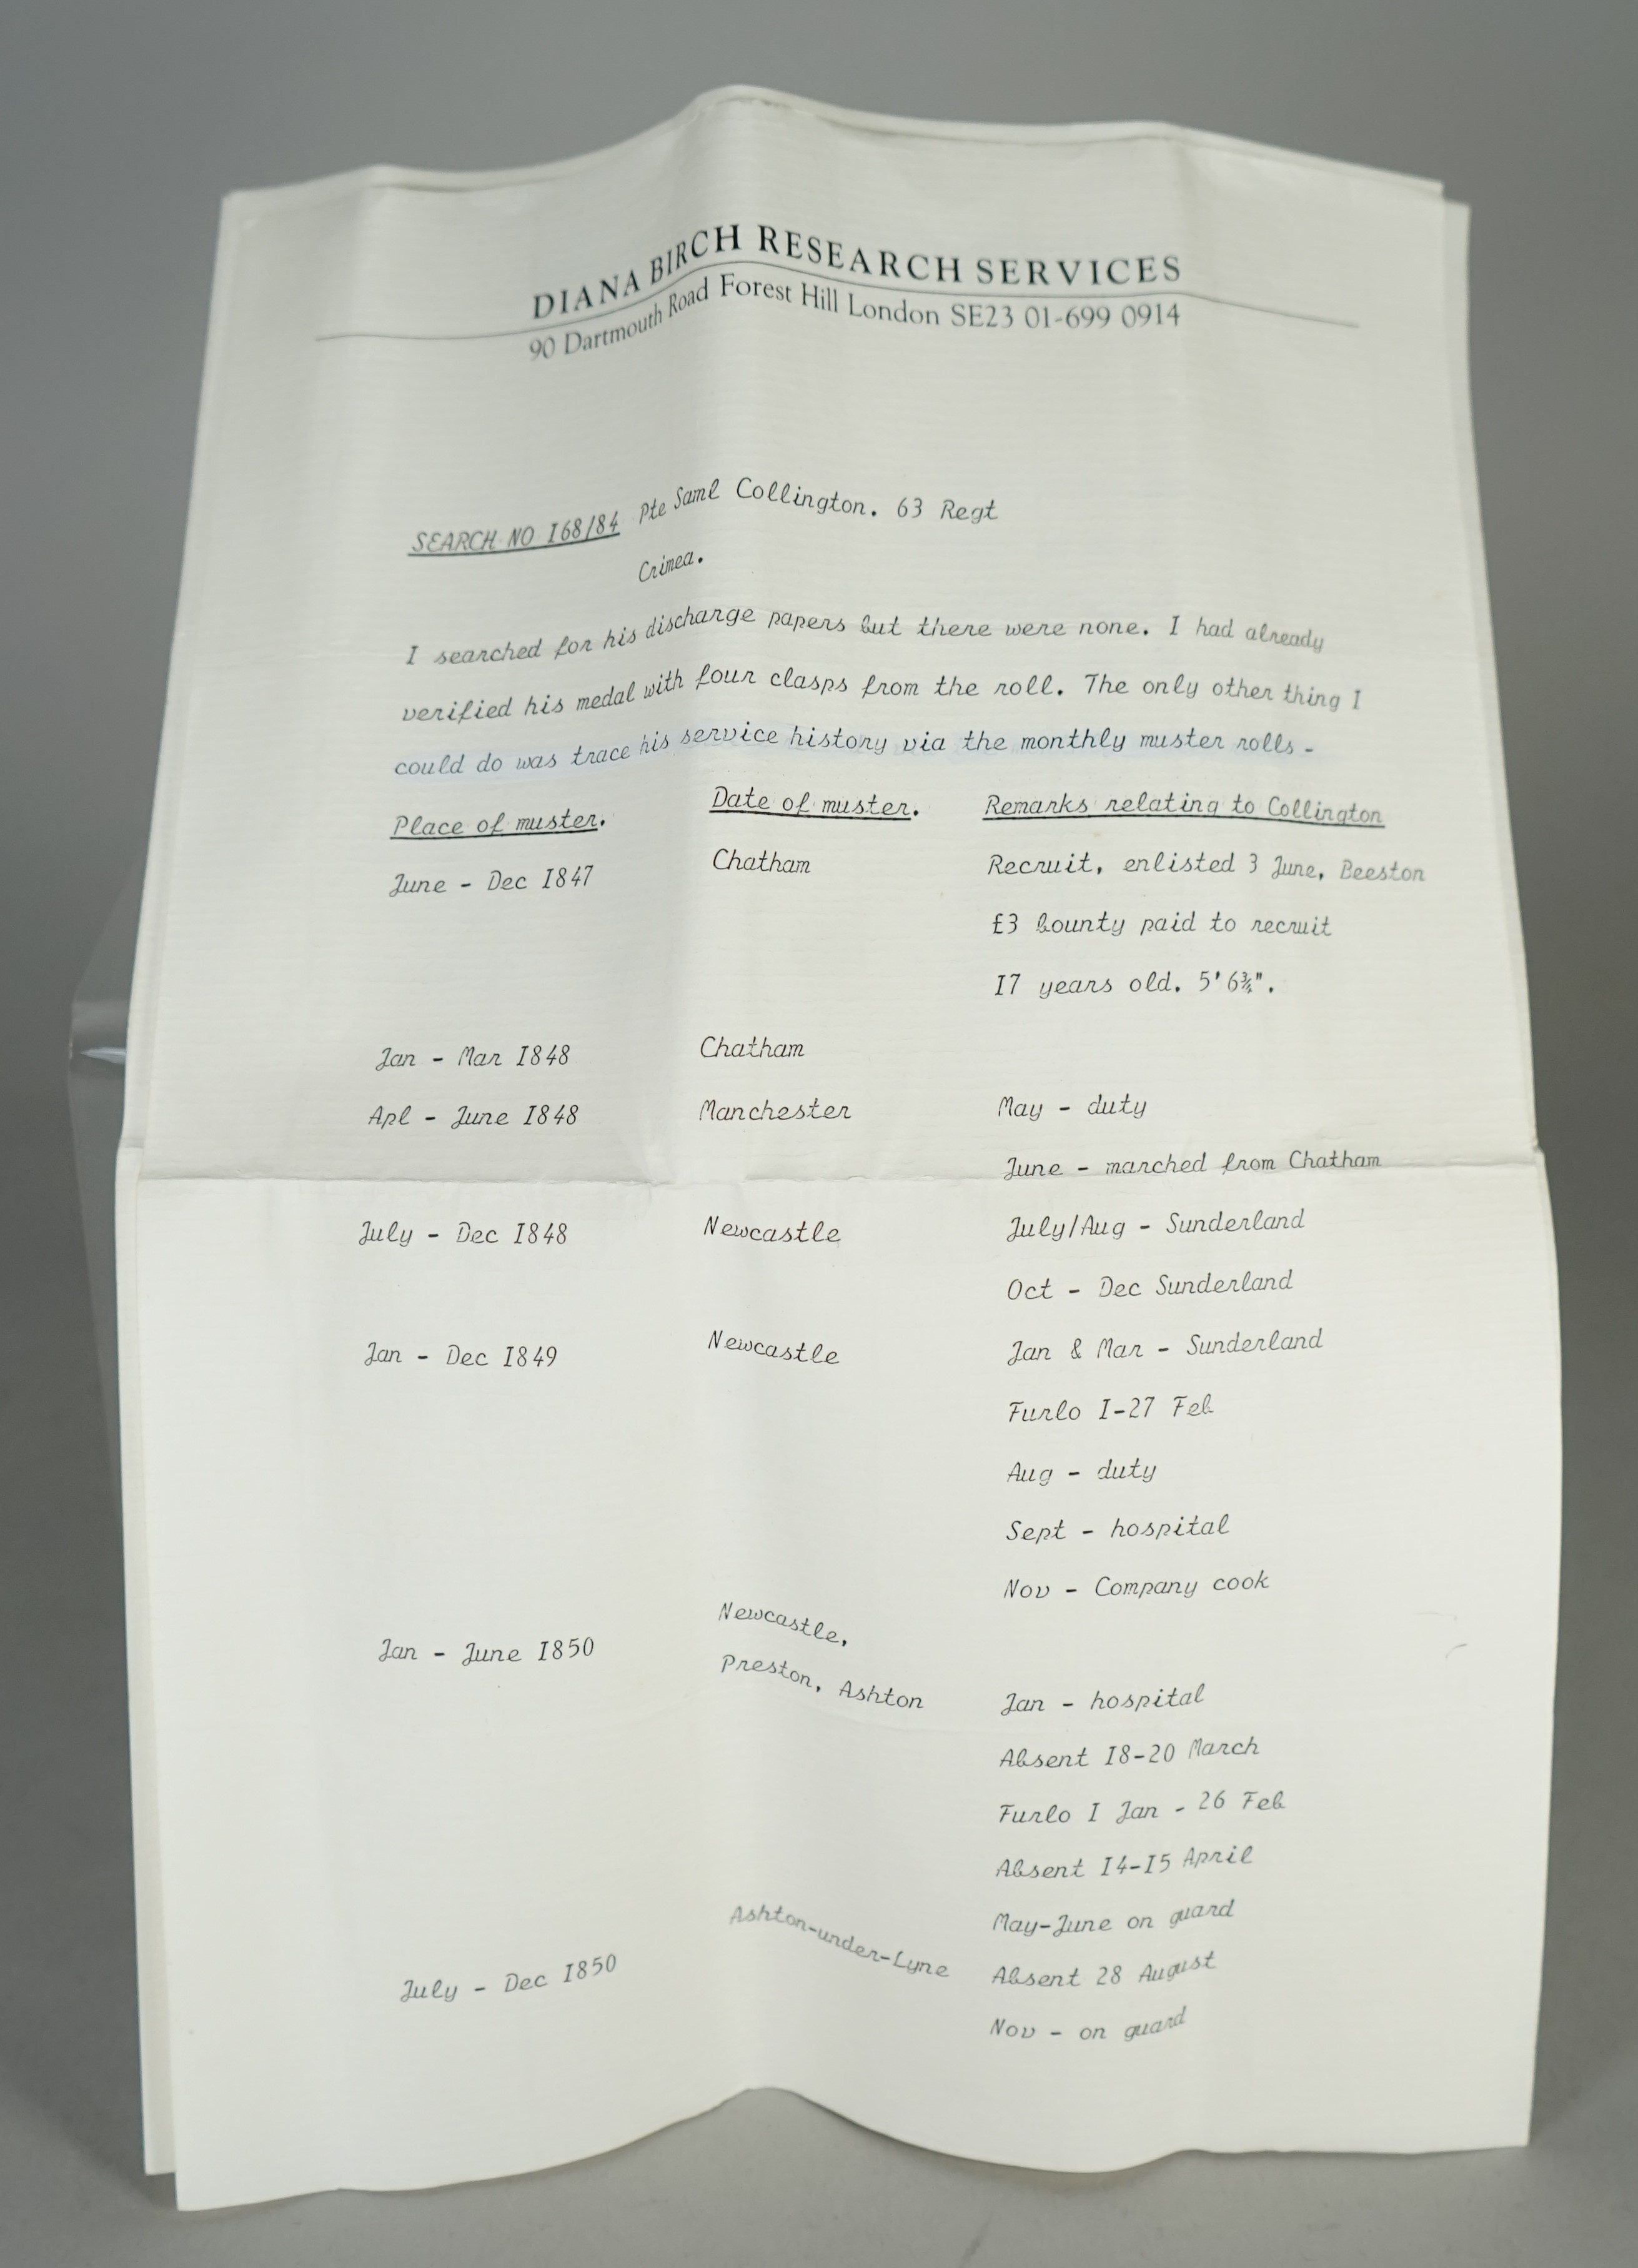 DIANA BIRCH RESEARCH SERVICES
90 Dartmouth Road Forest Hill London SE23 01-699 0914
SEARCH NO I68/84 Pte Saml Collington. 63 Regt
Crimea.
I searched for his discharge papers but there were none. I had already
verified his medal with four clasps from the roll. The only other thing I
could do was trace his service history via the monthly muster rolls -
Place of muster. Date of muster. Remarks relating to Collington
June - Dec I847 Chatham Recruit, enlisted 3 June, Beeston
£3 bounty paid to recruit
I7 years old. 5'6¾".
Jan - Mar I848 Chatham
Apl - June I848 Manchester May - duty
June - marched from Chatham
July - Dec I848 Newcastle July/Aug - Sunderland
Oct - Dec Sunderland
Jan - Dec I849 Newcastle Jan & Mar - Sunderland
Furlo I-27 Feb
Aug - duty
Sept - hospital
Nov - Company cook
Jan - June I850 Newcastle,
Preston, Ashton Jan - hospital
Absent I8-20 March
Furlo I Jan - 26 Feb
Absent I4-I5 April
May-June on guard
July - Dec I850 Ashton-under-Lyne Absent 28 August
Nov - on guard